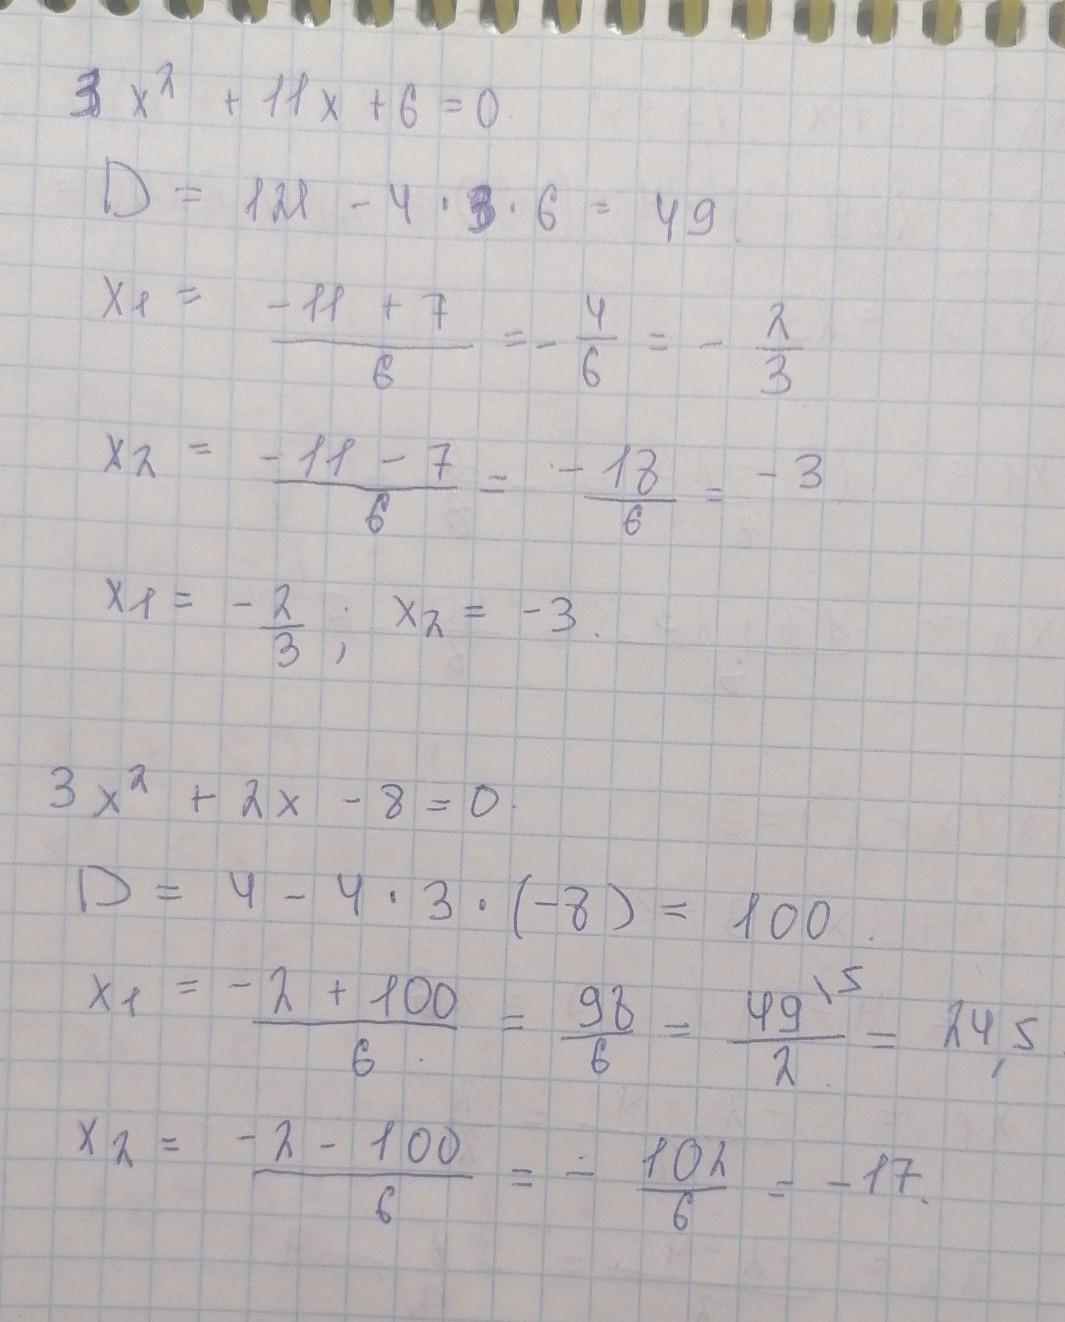 3x² + 11x + 6 = 0
D = 121 - 4 · 3 · 6 = 49
x1 = (-11 + 7)/6 = -4/6 = -2/3
x2 = (-11 - 7)/6 = -18/6 = -3
x1 = -2/3 ; x2 = -3.
3x² + 2x - 8 = 0.
D = 4 - 4 · 3 · (-8) = 100.
x1 = (-2 + 100)/6 = 98/6 = 49\5/2 = 24,5
x2 = (-2 - 100)/6 = -102/6 = -17.